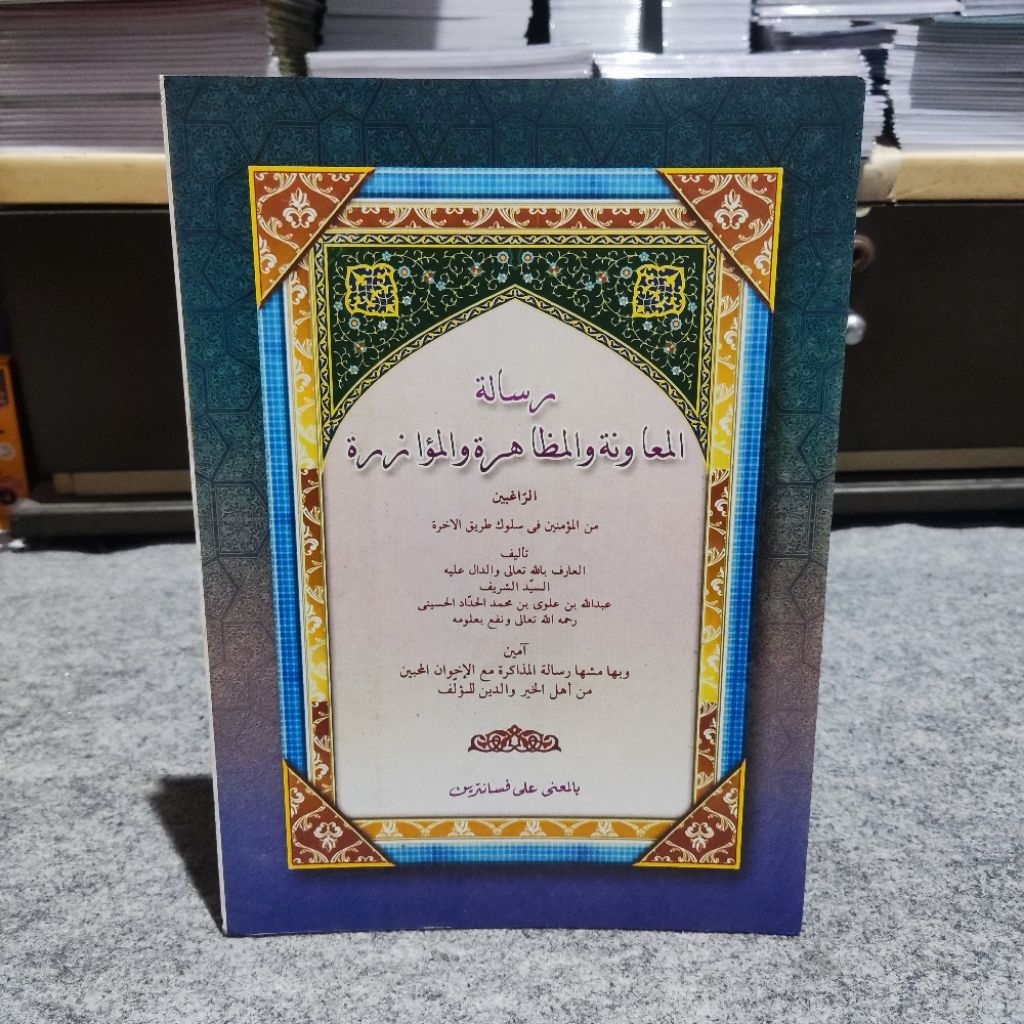 رسالة
المعاونة والمظاهرة والمؤازرة
الرّاغبين
من المؤمنين فى سلوك طريق الاخرة
تأليف
العارف بالله تعالى والدال عليه
السيّد الشريف
عبدالله بن علوى بن محمد الحدّاد الحسينى
رحمه الله تعالى ونفع بعلومه
آمين
وبها مشها رسالة المذاكرة مع الإخوان المحبين
من أهل الخير والدين للمؤلّف
بالمعنى على فسانترين